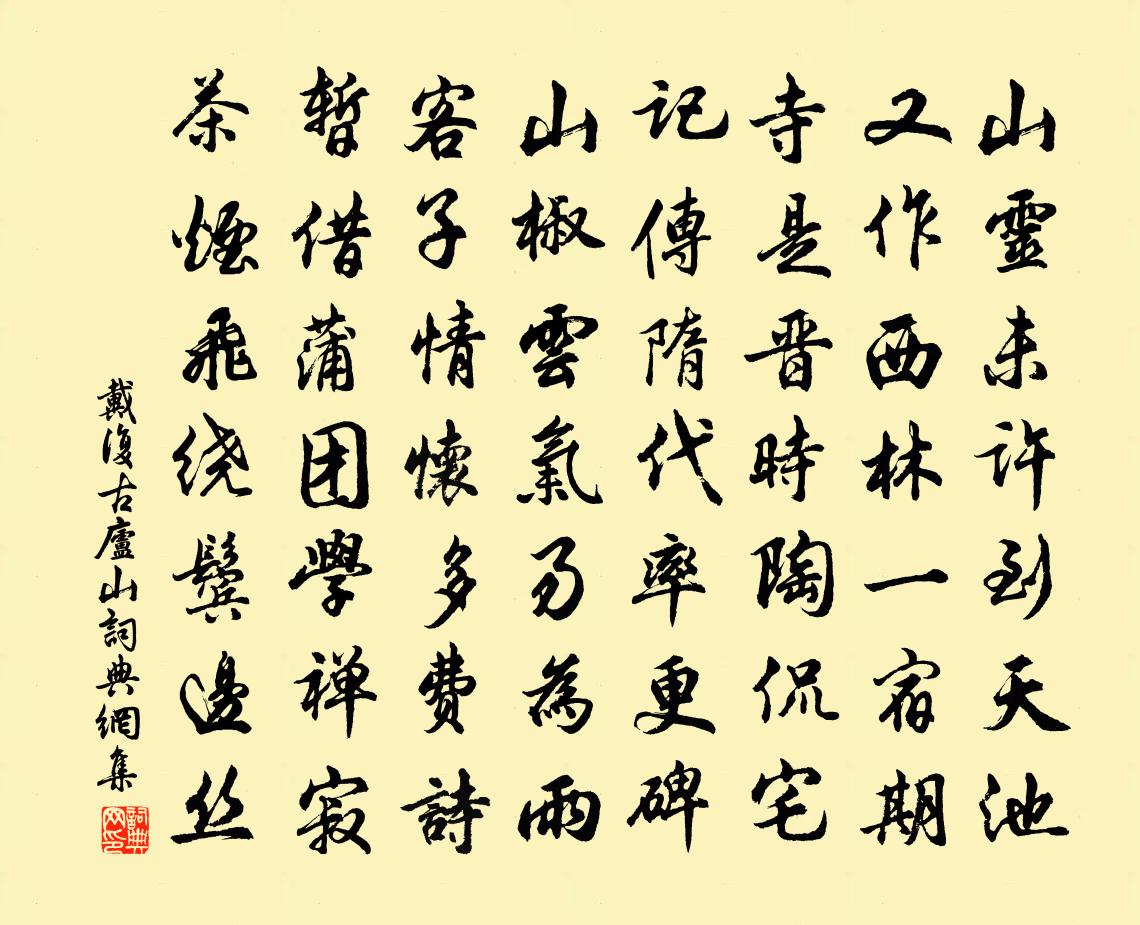 山靈未許到天池
又作西林一宿期
寺是晋時陶侃宅
記傳隋代率更碑
山椒雲氣易為雨
客子情懷多費詩
暫借蒲团學禅寂
茶煙飛绕鬓邊丝
戴復古廬山詞典網集
詞典网印